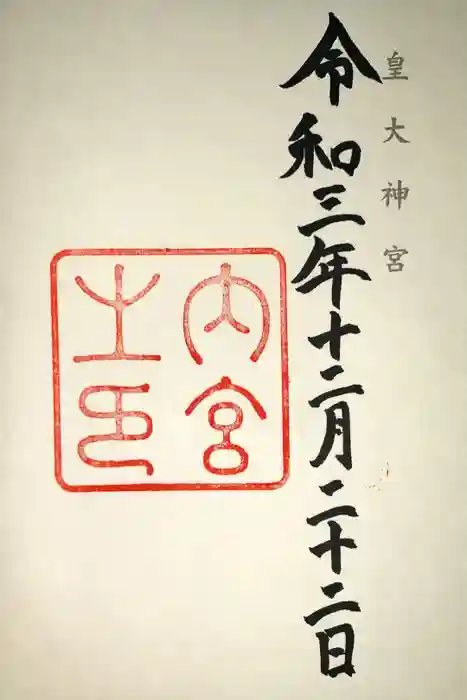 皇大神宮
令和三年十二月二十二日
内宮
之印